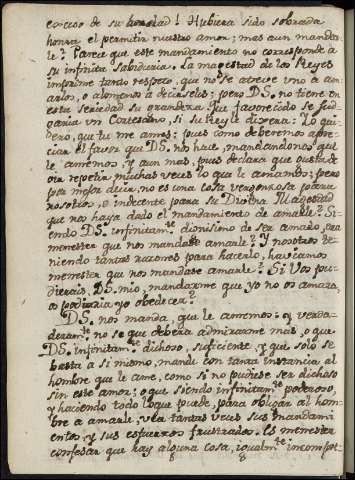 excceso de su bondad! Hubiera sido sobrada
honra el permitir nuestro amor; mas aun mandar
le? Parece que este mandamiento no corresponde a
su infinita Sabiduria. La magestad de los Reyes
imprime tanto respeto, que no se atreve uno a am
arlos, o alomenos à decirselos; pero DS. no tiene en
esta seriedad su grandeza. Que favorecido se juz-
garia un Cortesano, si su Rey le dixera: Yo qui-
ero, que tu me ames; pues como deberemos apre-
ciar el favor que DS. nos hace, mandandonos que
le amemos; y aun mas, pues declara que gusta de
oir repetir muchas veces lo que le amamos; pero
por mejor decir, no es una cosa vergonzosa para
nosotros, o indecente para su Divina Magestad
que nos haya dado el mandamiento de amarle? Si-
endo DS. infinitamte. dignisimo de ser amado, era
menester que nos mandase amarle? Y nosotros te-
niendo tantas razones para hacerlo, haviamos
menester que nos mandase amarle? Si Vos pu-
dierais, DS. mio, mandarme que yo no os amara,
os podria yo obedecer?
DS. nos manda, que le amemos: y verda-
deramte. no se que deberà admirarme mas, o que
DS. infinitamte. dichoso, suficiente, y que solo se
basta a Si mismo, mande con tanta instancia al
hombre que le ame, como si no pudiese ser dichoso
sin este amor; o que siendo infinitamte. poderoso,
y haciendo todo lo que puede, para obligar al hom-
bre a amarle, vea tantas veces sus mandami
entos, y sus esfuerzos frustrados. Es menester
confesar que hay alguna cosa, igualmte. incompre-